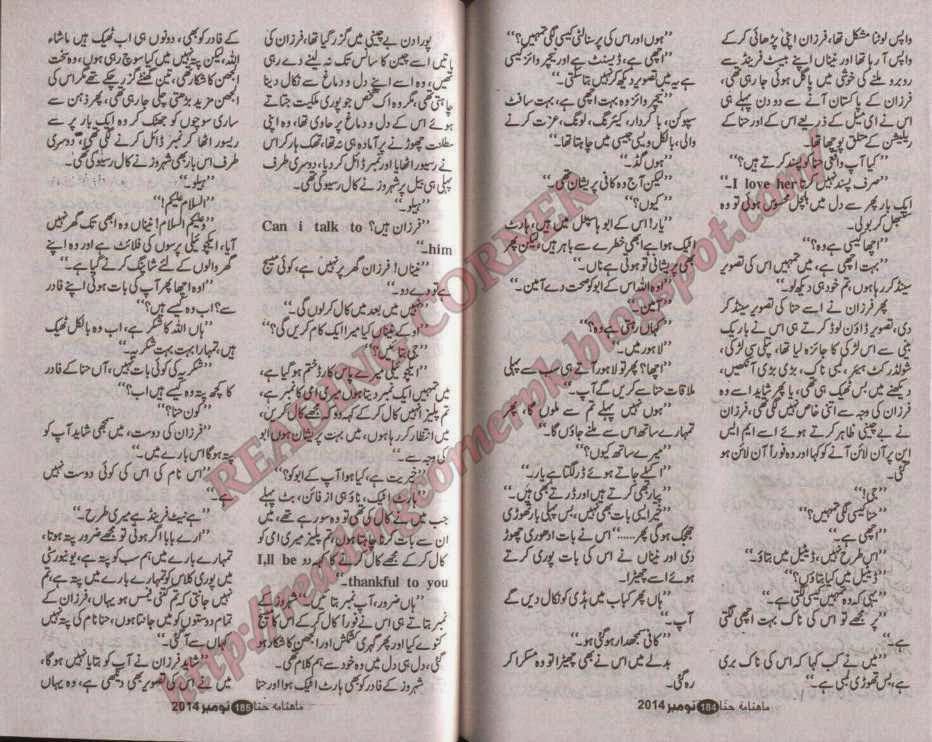 واپس لوٹنا مشکل تھا، فرزان اپنی پڑھائی کرکے
واپس آ رہا تھا اور نیناں اپنے بیسٹ فرینڈ سے
روبرو ملنے کی خوشی میں پاگل ہوئی جا رہی تھی،
فرزان کے پاکستان آنے سے دو دن پہلے ہی
اس نے ای میل کے ذریعے اس کے اور حنا کے
ریلیشن کے متعلق پوچھا تھا۔
”کیا آپ واقعی حنا کو پسند کرتے ہیں؟“
”صرف پسند نہیں کرتا I love her۔“
ایک بار پھر سے دل میں ہلچل محسوس ہوئی تو وہ
سنبھل کر بولی۔
”اچھا کیسی ہے وہ؟“
”بہت اچھی ہے، میں تمہیں اس کی تصویر
سینڈ کر رہا ہوں، تم خود ہی دیکھ لو۔“
پھر فرزان نے اسے حنا کی تصویر سینڈ کر
دی، تصویر ڈاؤن لوڈ کرتے ہی اس نے باریک
بینی سے اس لڑکی کا جائزہ لیا تھا، پتلی سی لڑکی،
شولڈر کٹ ہیئر، لمبی ناک، بڑی بڑی آنکھیں،
دیکھنے میں بس ٹھیک ہی تھی، یا پھر شاید اسے وہ
فرزان کی وجہ سے اتنی خاص نہیں لگی تھی، فرزان
نے بے چینی ظاہر کرتے ہوئے اسے ایم ایس
این پر آن لائن آنے کو کہا اور وہ فوراً آن لائن ہو
گئی۔
”جی!“
”حنا کیسی لگی تمہیں؟“
”اچھی ہے۔“
”اس طرح نہیں، ڈیٹیل میں بتاؤ۔“
”ڈیٹیل میں کیا بتاؤں؟“
”یہی کہ وہ تمہیں کیسی لگتی ہے۔“
”پر مجھے تو اس کی ناک بہت اچھی لگتی
ہے۔“
”میں نے کب کہا کہ اس کی ناک بری
ہے، بس تھوڑی لمبی ہے۔“
”ہوں اور اس کی پرسنالٹی کیسی لگی تمہیں؟“
”اچھی ہے، ڈیسنٹ ہے اور نیچر وائز کیسی
ہے یہ میں تصویر دیکھ کر نہیں بتا سکتی۔“
”نیچر وائز وہ بہت اچھی ہے، بہت سافٹ
سپوکن، باکردار، کیئرنگ، لونگ، عزت کرنے
والی، بالکل ویسی جیسی میں چاہتا تھا۔“
”ہوں گڈ۔“
”لیکن آج وہ کافی پریشان تھی۔“
”کیوں؟“
”یار! اس کے ابو ہاسپٹل میں ہیں، ہارٹ
اٹیک ہوا ہے ابھی خطرے سے باہر ہیں، لیکن پھر
بھی پریشانی تو ہوتی ہے ناں۔“
”اوہ اللہ اس کے ابو کو صحت دے آمین۔“
”آمین۔“
”کہاں رہتی ہے وہ؟“
”لاہور میں۔“
”اچھا؟ پھر تو لاہور آتے ہی سب سے پہلے
ملاقات حنا سے کریں گے آپ۔“
”ہوں نہیں پہلے تم سے ملوں گا، پھر
تمہارے ساتھ اس سے ملنے جاؤں گا۔“
”میرے ساتھ کیوں؟“
”اکیلے جاتے ہوئے ڈر لگتا ہے یار۔“
”پیار بھی کرتے ہیں اور ڈرتے بھی ہیں۔“
”خیر ایسی بات بھی نہیں، بس پہلی بار تھوڑی
جھجک ہو گی پھر......“ اس نے بات ادھوری چھوڑ
دی اور نیناں نے اس کی بات پوری کرتے
ہوئے اسے چھیڑا۔
”ہاں پھر کباب میں ہڈی کو نکال دیں گے
آپ۔“
”کافی سمجھدار ہو گئی ہو۔“
بدلے میں اس نے بھی چھیڑا تو وہ مسکرا کر
رہ گئی۔
ماہنامہ حنا 184 نومبر 2014
پورا دن بے چینی میں گزر گیا تھا، فرزان کی
باتیں اسے چین کا سانس تک نہ لینے دے رہی
تھیں، وہ اسے اپنے دل و دماغ سے نکال دینا
چاہتی تھی، مگر وہ اک شخص جو پوری ملکیت جتاتے
ہوئے اس کے دل و دماغ پر حاوی تھا، وہ اپنی
سلطنت چھوڑنے پر آمادہ ہی نہ تھا، تھک ہار کر اس
نے رسیور اٹھایا اور نمبر ڈائل کر دیا، دوسری طرف
پہلی ہی بیل پر شہروز نے کال رسیو کی تھی۔
”ہیلو۔“
”فرزان ہیں؟ Can i talk to
him۔“
”نیناں! فرزان گھر پر نہیں ہے، کوئی میسج
ہے تو دے دو۔“
”نہیں میں بعد میں کال کر لوں گی۔“
”اوکے نیناں کیا میرا ایک کام کریں گی؟“
”جی بتائیں؟“
”ایکچو ئیلی میرے پاس کارڈ ختم ہو گیا ہے،
میں تمہیں ایک نمبر دیتا ہوں میری امی کا نمبر ہے،
تم پلیز انہیں کال کر کے کہہ دو کہ مجھے کال کریں،
میں انتظار کر رہا ہوں، میں بہت پریشان ہوں ابو
کی وجہ سے۔“
”خیریت ہے، کیا ہوا آپ کے ابو کو؟“
”ہارٹ اٹیک، ناؤ ہی از فائن، بٹ پہلے
جب میں نے کال کی تھی تو وہ سو رہے تھے، میں
ان سے بات کرنا چاہتا ہوں، تم پلیز میری امی کو
کال کر کے مجھے کال کرنے کا کہہ دو I,ll be
thankful to you۔“
”ہاں ضرور، آپ نمبر بتائیں۔“ شہروز نے
نمبر بتاتے ہی اس نے فوراً کال کر کے اس کا میسج
کنوے کیا اور پھر گہری کشمکش اور الجھن کا شکار ہو
گئی، دل ہی دل میں وہ خود سے ہم کلام تھی۔
شہروز کے فادر کو بھی ہارٹ اٹیک ہوا اور حنا
کے فادر کو بھی، دونوں ہی اب ٹھیک ہیں ماشاء
اللہ، لیکن پتہ نہیں میں کیا سوچ رہی ہوں، وہ سخت
الجھن کا شکار تھی، تین گھنٹے گزر چکے تھے مگر اس کی
الجھن مزید بڑھتی چلی جا رہی تھی، پھر ذہن سے
ساری سوچوں کو جھٹک کر وہ ایک بار پر سے
ریسور اٹھا کر نمبر ڈائل کرنے لگی تھی، دوسری
طرف اس بار بھی شہروز نے کال رسیو کی تھی۔
”ہیلو۔“
”السلام علیکم!“
”وعلیکم السلام! نیناں وہ ابھی تک گھر نہیں
آیا، ایکچو ئیلی پرسوں کی فلائٹ ہے اور وہ اپنے
گھر والوں کے لئے شاپنگ کرنے گیا ہے۔“
”اوہ اچھا پھر آپ کی بات ہوئی اپنے فادر
سے؟ اب وہ کیسے ہیں؟“
”ہاں اللہ کا شکر ہے، اب وہ بالکل ٹھیک
ہیں، تمہارا بہت بہت شکریہ۔“
”شکریہ کی کوئی بات نہیں، آں حنا کے فادر
کا کچھ پتہ وہ کیسے ہیں اب؟“
”کون حنا؟“
”فرزان کی دوست، میں سمجھی شاید آپ کو
پتہ ہو گا اس بارے میں۔“
”اس نام کی اس کی کوئی دوست نہیں
ہے۔“
”ہے نیٹ فرینڈ ہے میری طرح۔“
”ارے بابا اگر ہوتی تو مجھے ضرور پتہ ہوتا،
تمہارے بارے میں ہم سب کو پتہ ہے، یونیورسٹی
میں پوری کلاس کو تمہارے بارے میں پتہ ہے، تم
نہیں جانتی کہ تم کتنی فیمس ہو یہاں، فرزان کے
تمام دوستوں کو میں جانتا ہوں، حنا نام کی پتہ نہیں
کہاں سے آ گئی۔“
”شاید فرزان نے آپ کو بتایا نہیں ہو گا،
میں نے اس کی تصویر بھی دیکھی ہے، وہ یہاں
ماہنامہ حنا 185 نومبر 2014
READING CORNER
http://readingcornerpk.blogspot.com/